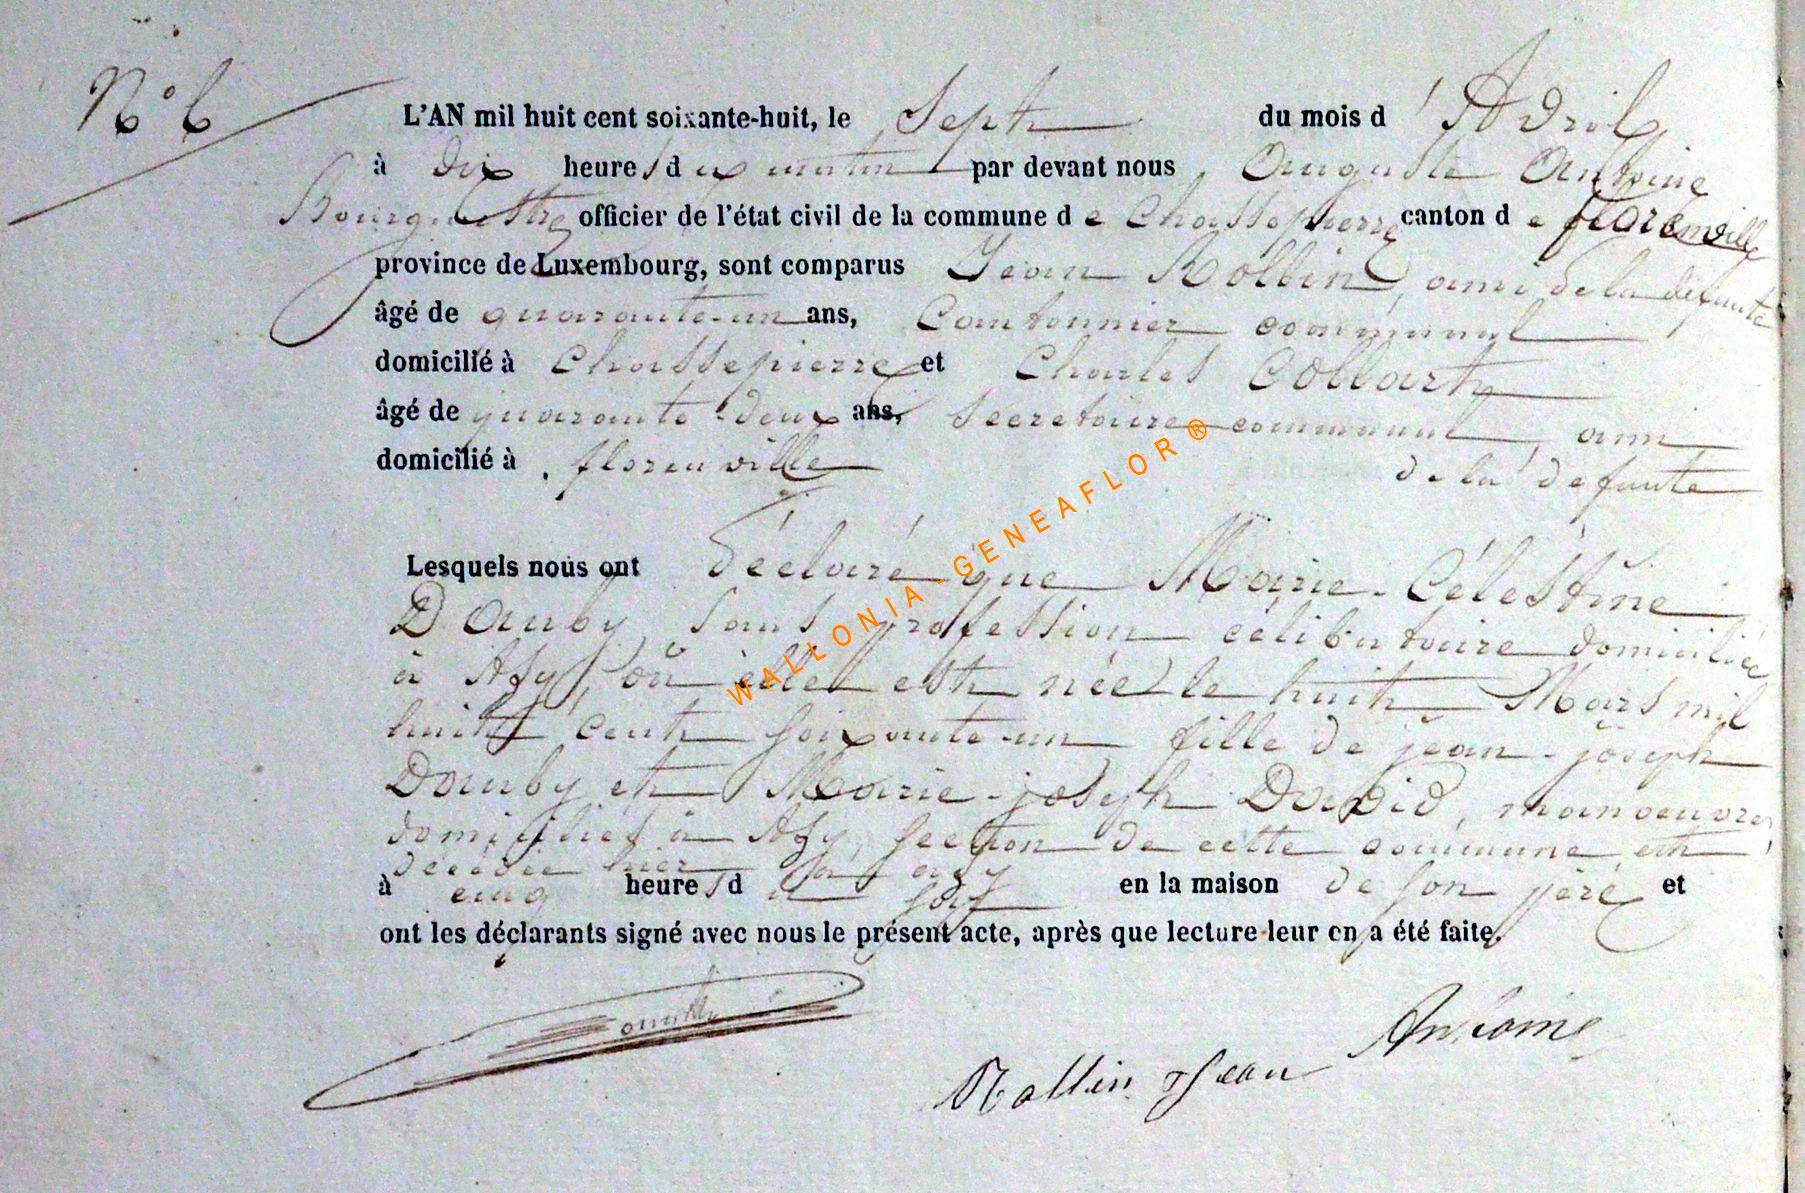 N° 6
L'AN mil huit cent soixante-huit, le Sept du mois d'Avril
à dix heures du matin par devant nous Auguste Antoine
Bourguestre officier de l'état civil de la commune de Chassepierre canton de florenville
province de Luxembourg, sont comparus Jean Rollin, ami de la défunte
âgé de quarante-un ans, Cantonnier communal
domicilié à Chassepierre et Charles Collart
âgé de quarante-deux ans, Secretaire communal, ami
domicilié à florenville de la défunte
Lesquels nous ont déclaré que Marie-Célestine
Dauby, sans profession célibataire domiciliée
à Azy, où elle est née le huit Mars mil
huit cent soixante-un fille de jean-joseph
Dauby et Marie-joseph David, manoeuvres
domiciliés à Azy, section de cette commune, est
décédée hier à azy
à cinq heures du soir en la maison de son père et
ont les déclarants signé avec nous le présent acte, après que lecture leur en a été faite.
Rollin Jean Antoine
WALLONIA-GENEAFLOR®